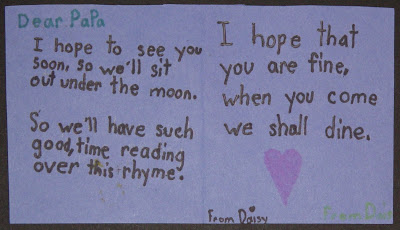 Dear PaPa
I hope to see you
soon, so we'll sit
out under the moon.
So we'll have such
good, time reading
over this rhyme.
I hope that
you are fine,
when you come
we shall dine.
From Daisy
From Dais